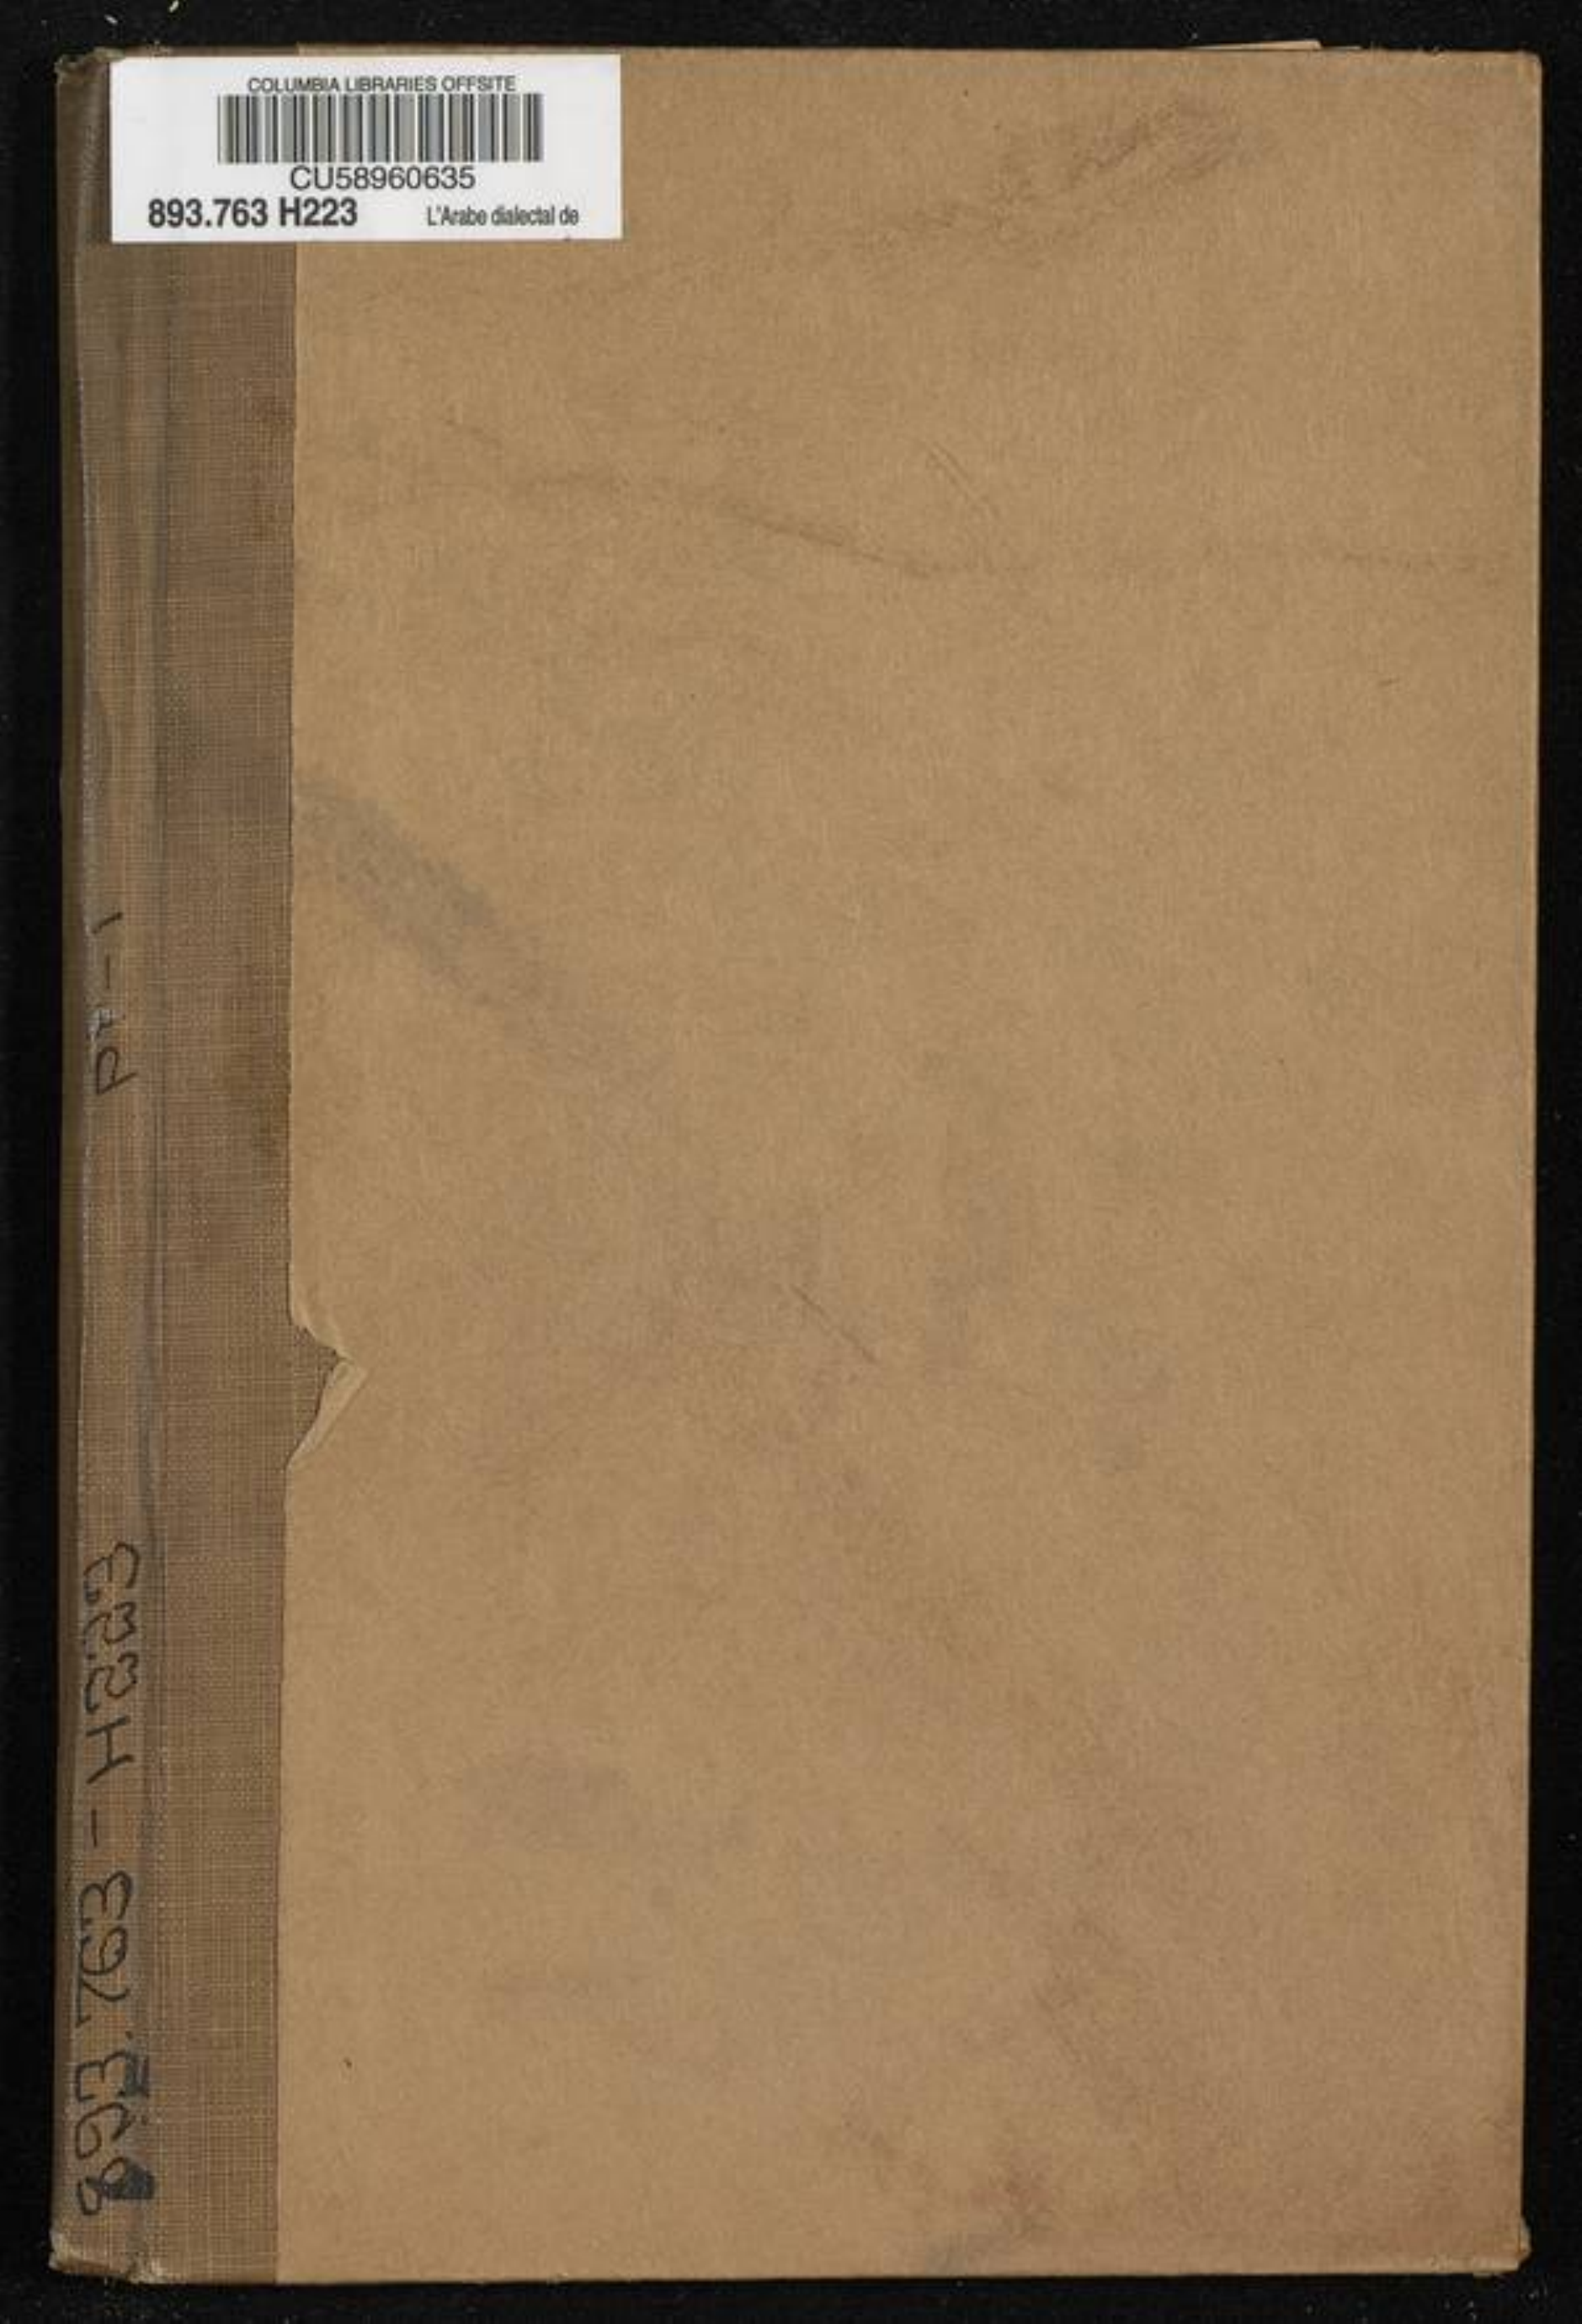 COLUMBIA LIBRARIES OFFSITE
CU58960635
893.763 H223 L'Arabe dialectal de
893.763 - H223